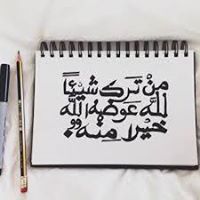 مِنْ تَرَكَ شَيْئاً
لله عَوضه الله
خيرا منه